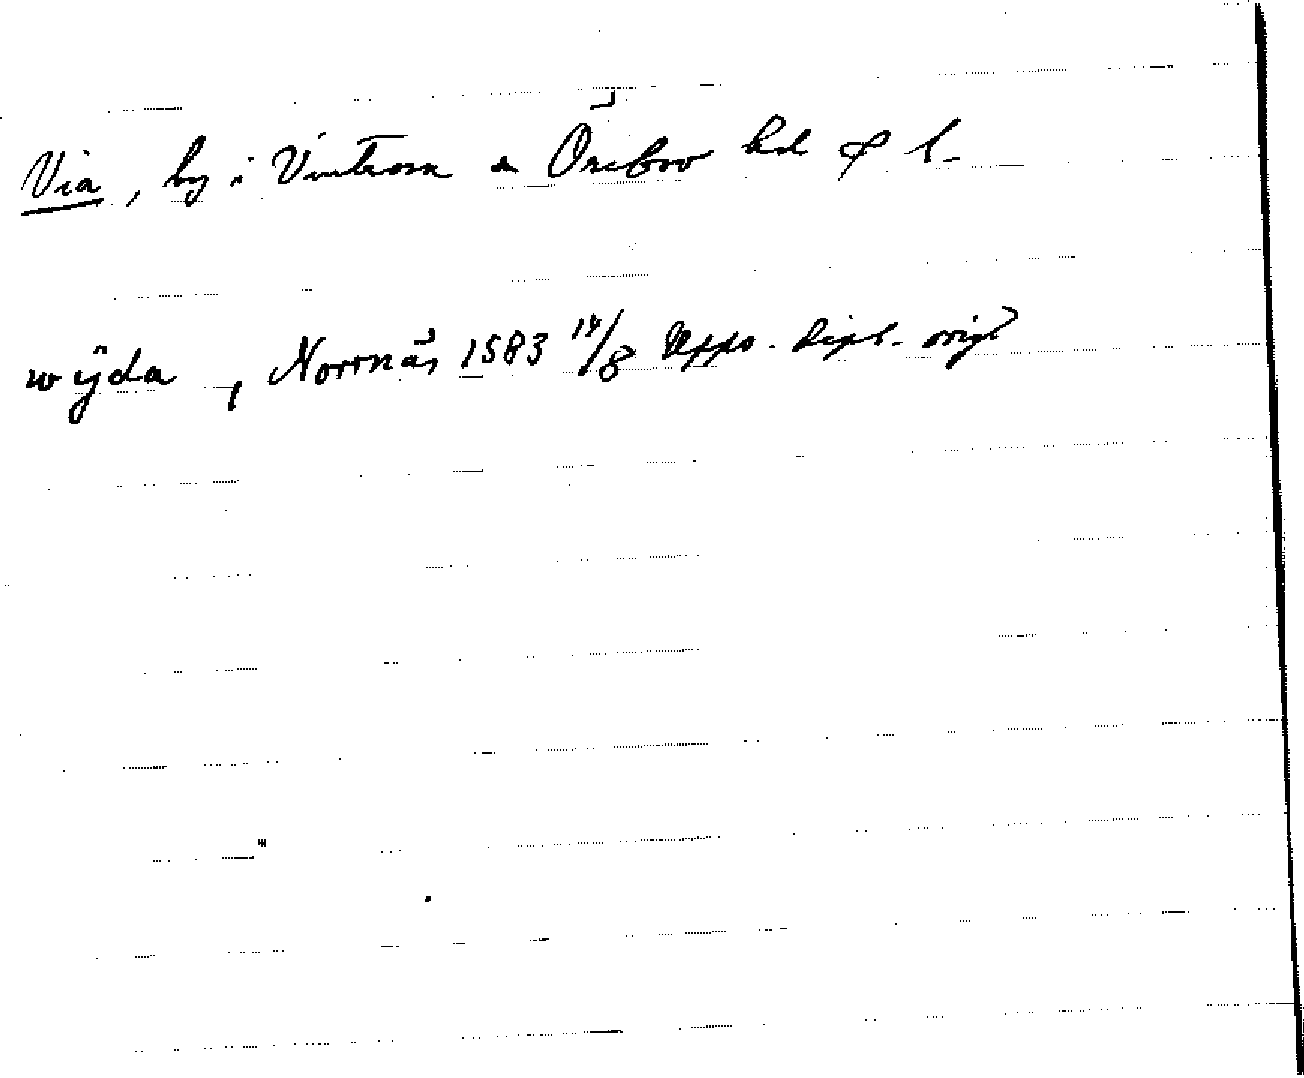 Via, by i Vintrosa sn Örebro hd & l.
wÿda, Norrnäs 1583 14/8 Upps. dipl. orig